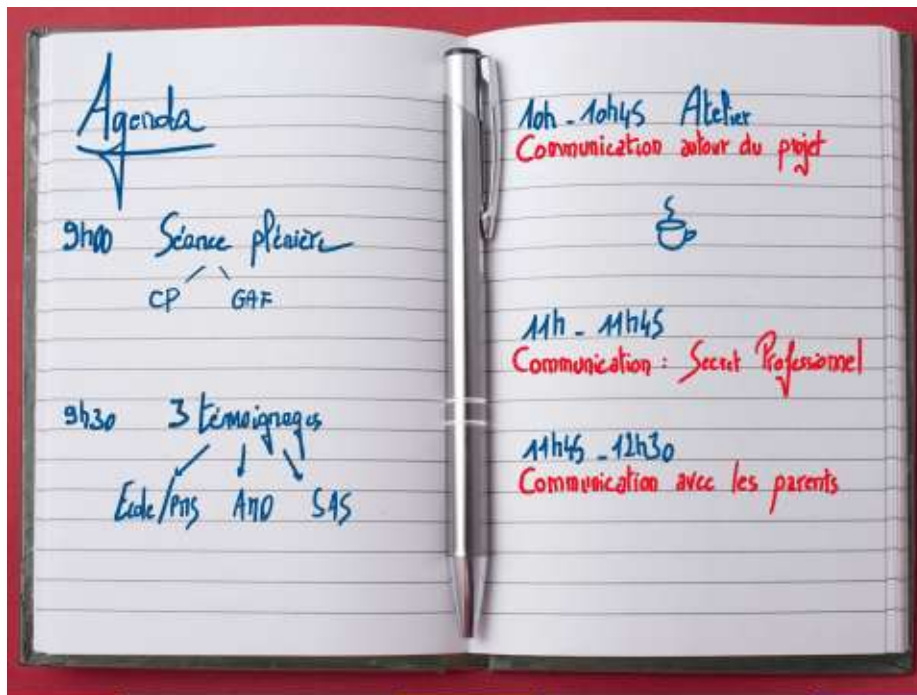 Agenda
9h00 Séance plénière
CP GAF
9h30 3 témoignages
Ecole/PMS AMO SAS
10h - 10h45 Atelier
Communication autour du projet
11h - 11h45
Communication : Secret Professionnel
11h45 - 12h30
Communication avec les parents